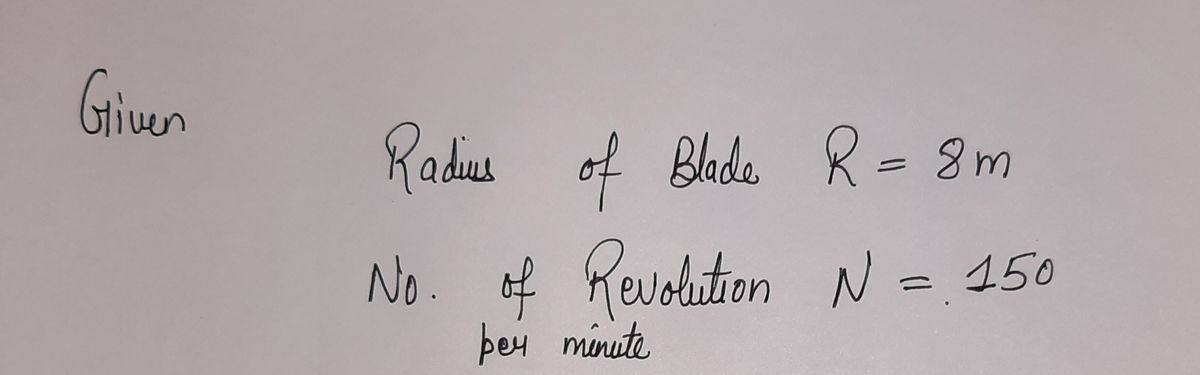 Given
Radius of Blade R = 8m
No. of Revolution N = 150
per minute